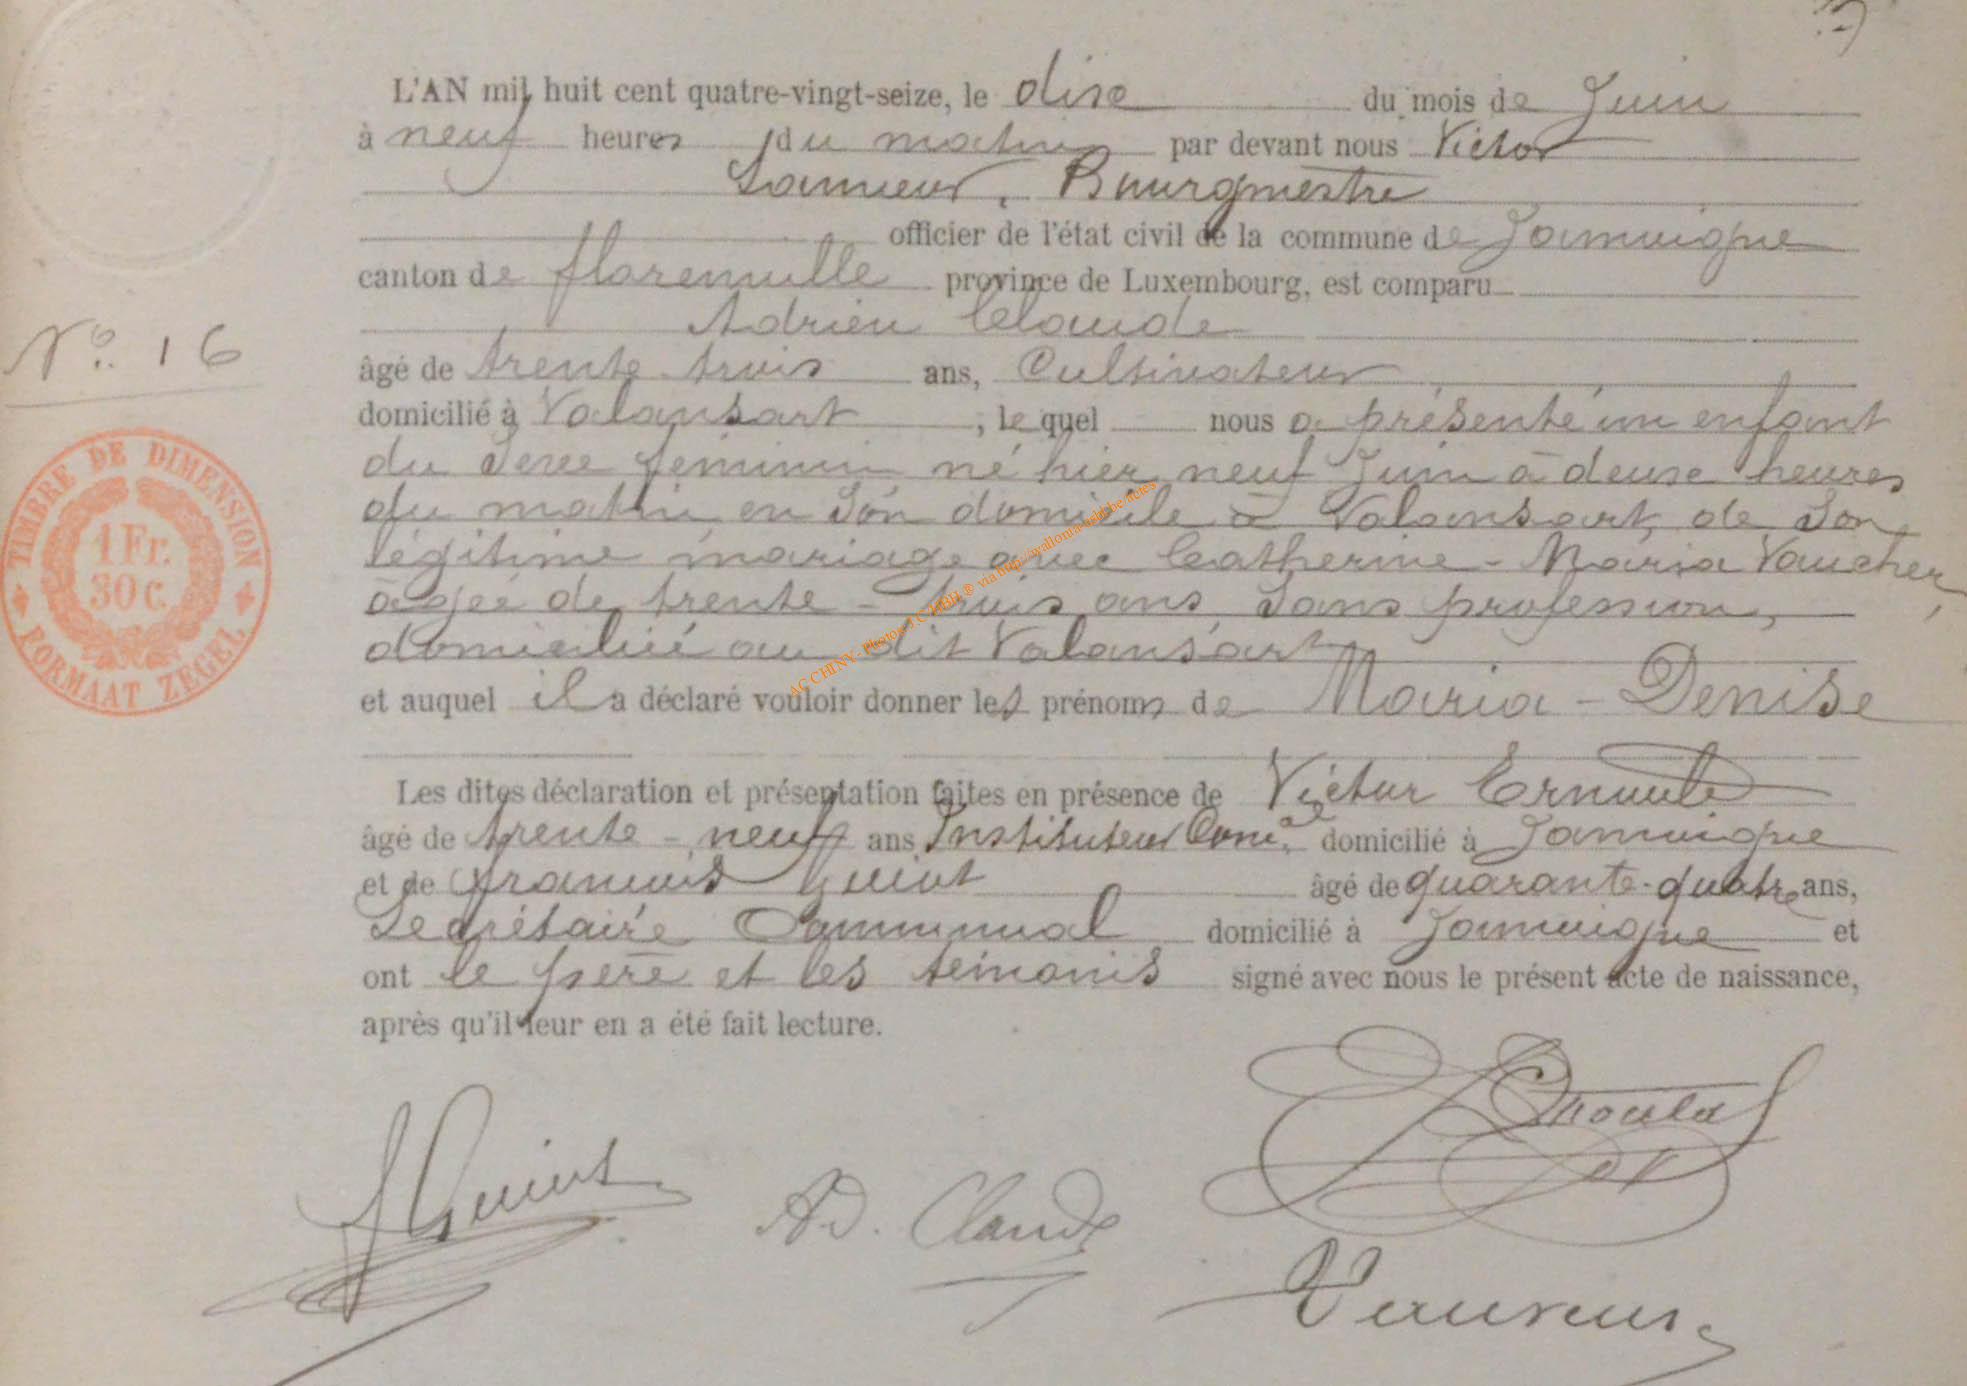 L'AN mil huit cent quatre-vingt-seize, le dixe du mois de Juin
à neuf heures du matin par devant nous Victor
Lamieur, Bourgmestre
officier de l'état civil de la commune de Jamoigne
canton de florenville province de Luxembourg, est comparu
Adrien Claude
N° 16
âgé de trente trois ans, Cultivateur
domicilié à Valansart, lequel nous a présenté un enfant
du Sexe féminin né hier neuf Juin à deuxe heures
du matin en Son domicile à Valansart, de Son
légitime mariage avec Catherine-Maria Vaucher,
âgée de trente-trois ans, Sans profession,
domiciliée au dit Valansart
et auquel il a déclaré vouloir donner les prénoms de Maria-Denise
Les dites déclaration et présentation faites en présence de Victor
âgé de trente-neuf ans Instituteur Comal domicilié à Jamoigne
et de françois Guiot âgé de quarante-quatre ans,
Secrétaire Communal domicilié à Jamoigne et
ont le père et les témoins signé avec nous le présent acte de naissance,
après qu'il leur en a été fait lecture.
TIMBRE DE DIMENSION
1 Fr.
30 c.
FORMAAT ZEGEL
AC CHINY - Photos J.C HBH ® via http://wallonia-asbl.be/actes
Ad. Claude